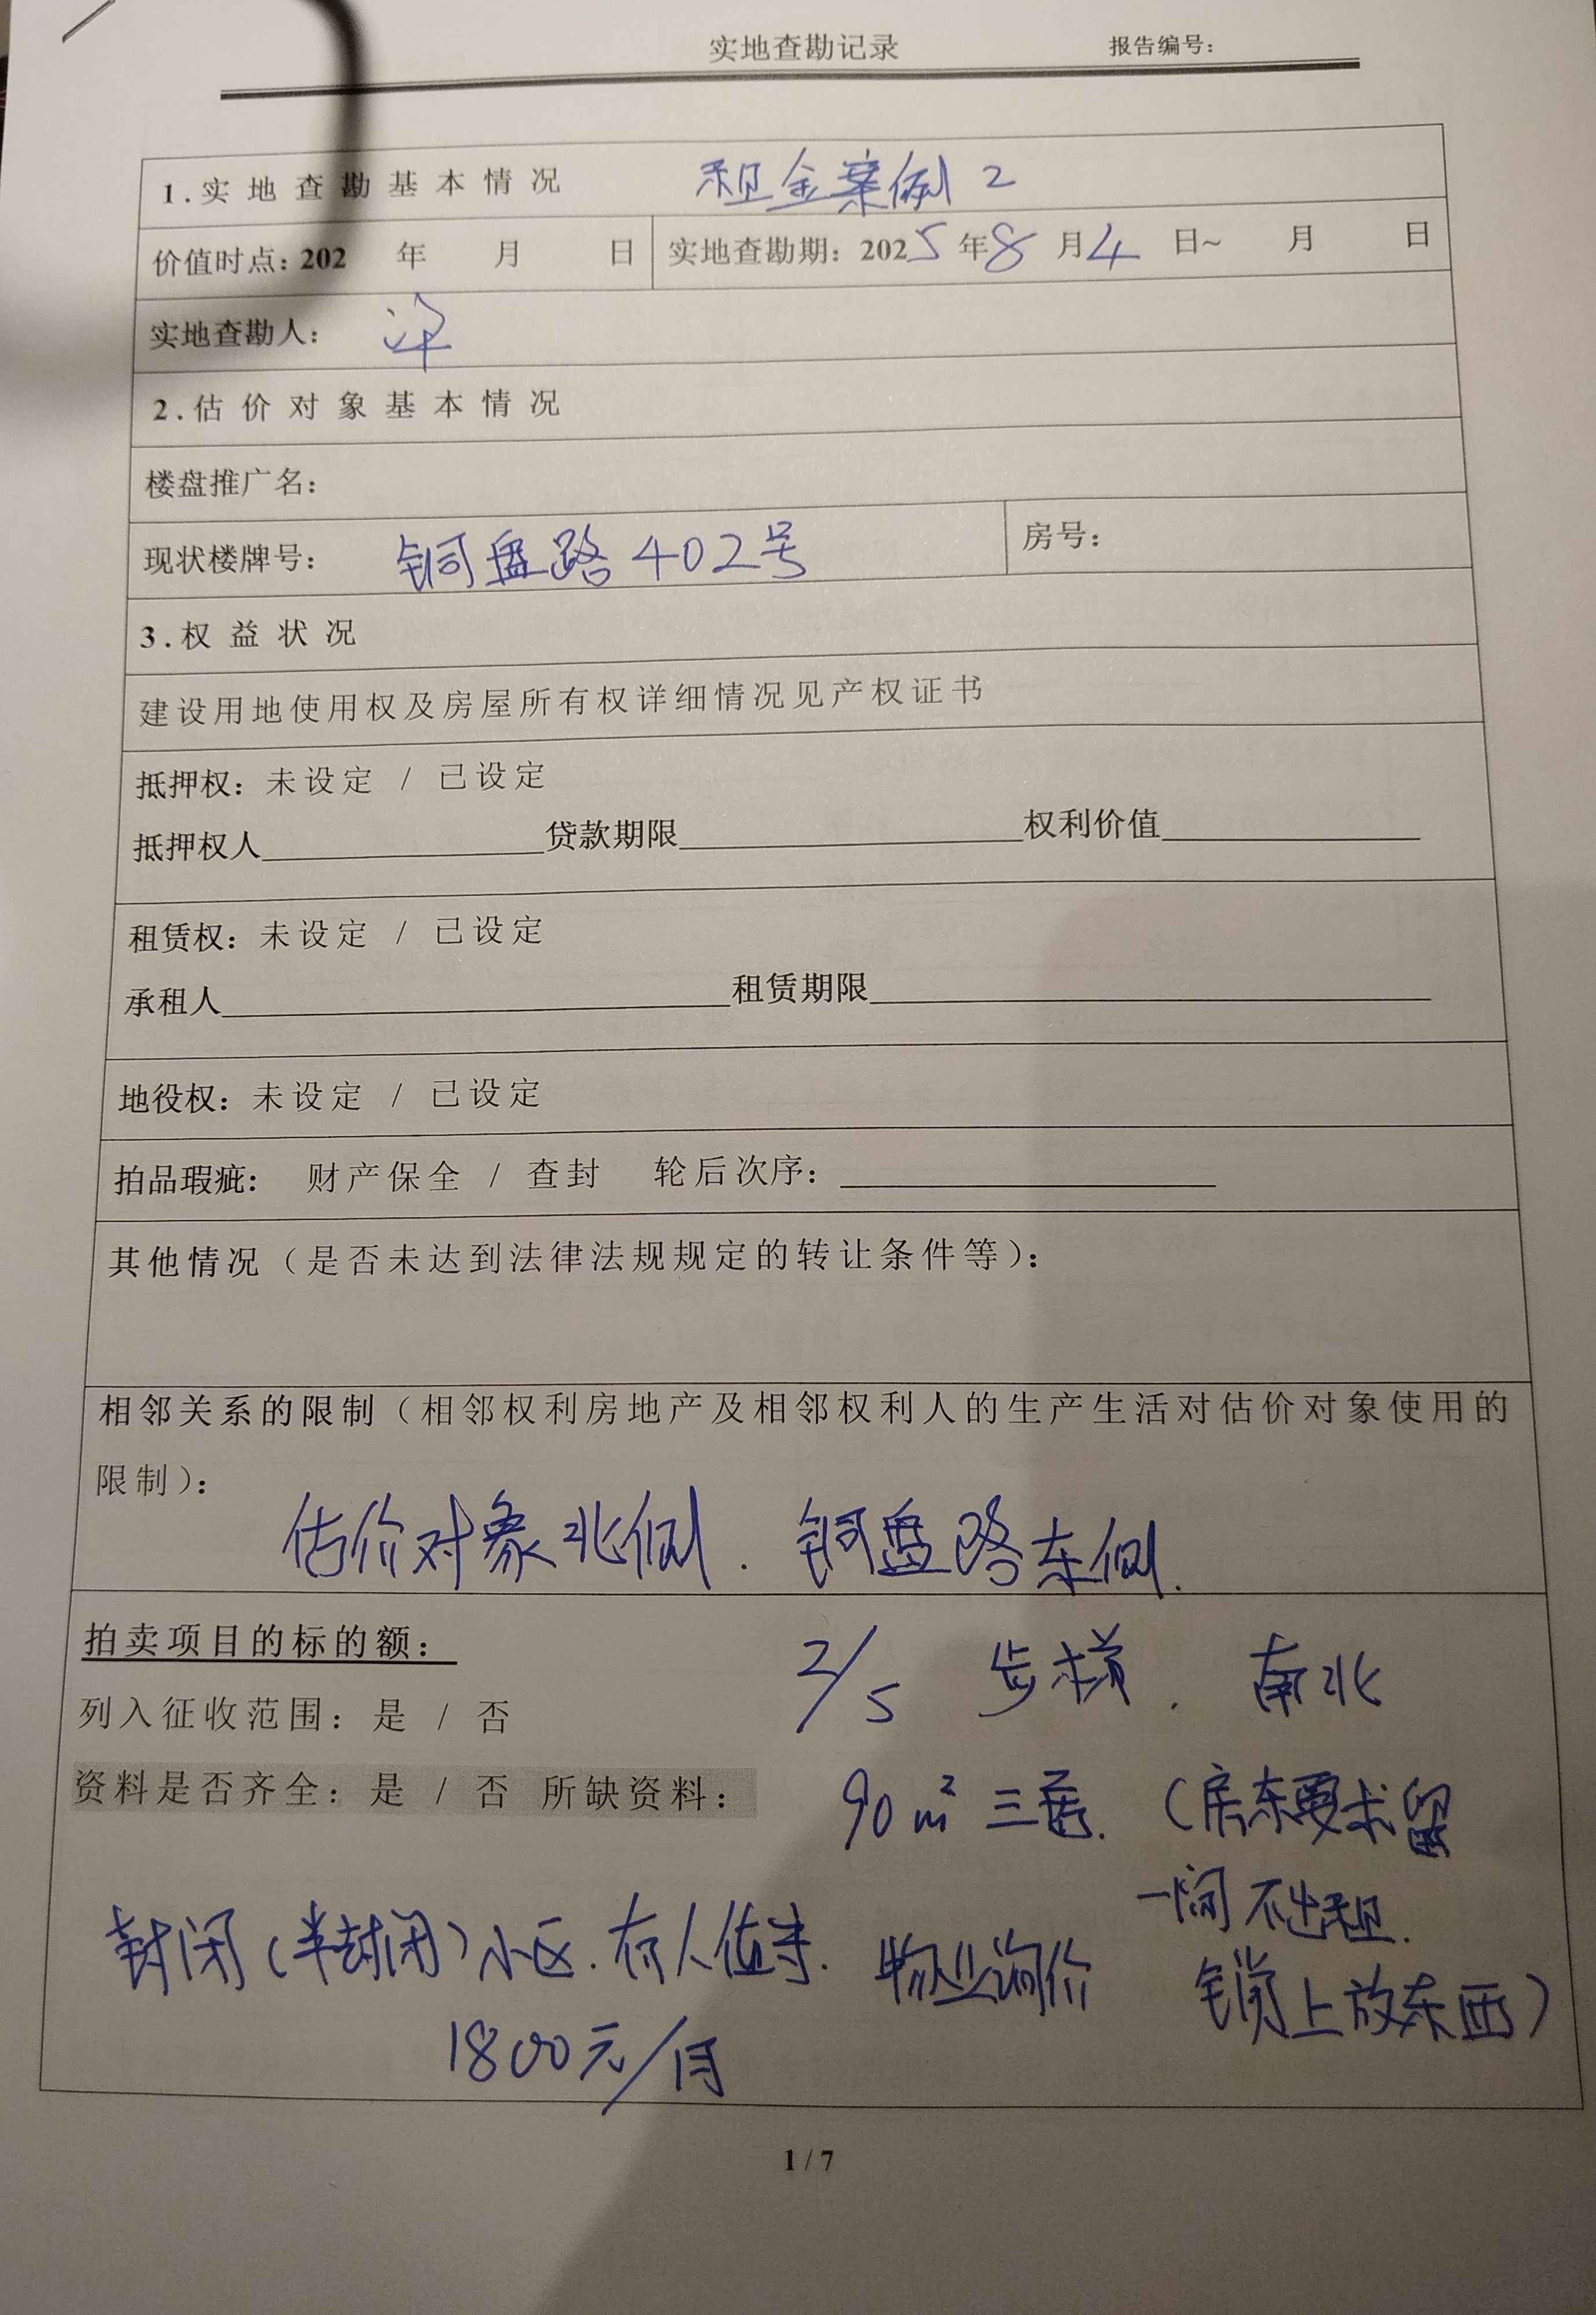 实地查勘记录 报告编号：
1.实地查勘基本情况 租金案例2
价值时点：202 年 月 日 实地查勘期：2025年8月4日~ 月 日
实地查勘人：
2.估价对象基本情况
楼盘推广名：
现状楼牌号： 铜盘路402号 房号：
3.权益状况
建设用地使用权及房屋所有权详细情况见产权证书
抵押权：未设定 / 已设定
抵押权人 贷款期限 权利价值
租赁权：未设定 / 已设定
承租人 租赁期限
地役权：未设定 / 已设定
拍品瑕疵： 财产保全 / 查封 轮后次序：
其他情况（是否未达到法律法规规定的转让条件等）：
相邻关系的限制（相邻权利房地产及相邻权利人的生产生活对估价对象使用的
限制）：
估价对象北侧. 铜盘路东侧.
拍卖项目的标的额： 2/5 步梯. 南北
列入征收范围：是 / 否
资料是否齐全：是 / 否 所缺资料： 90m² 三居.（房东要求留
一间不出租.
封闭（半封闭）小区.有人值守. 物业询价 锁上放东西）
1800元/月
1/7